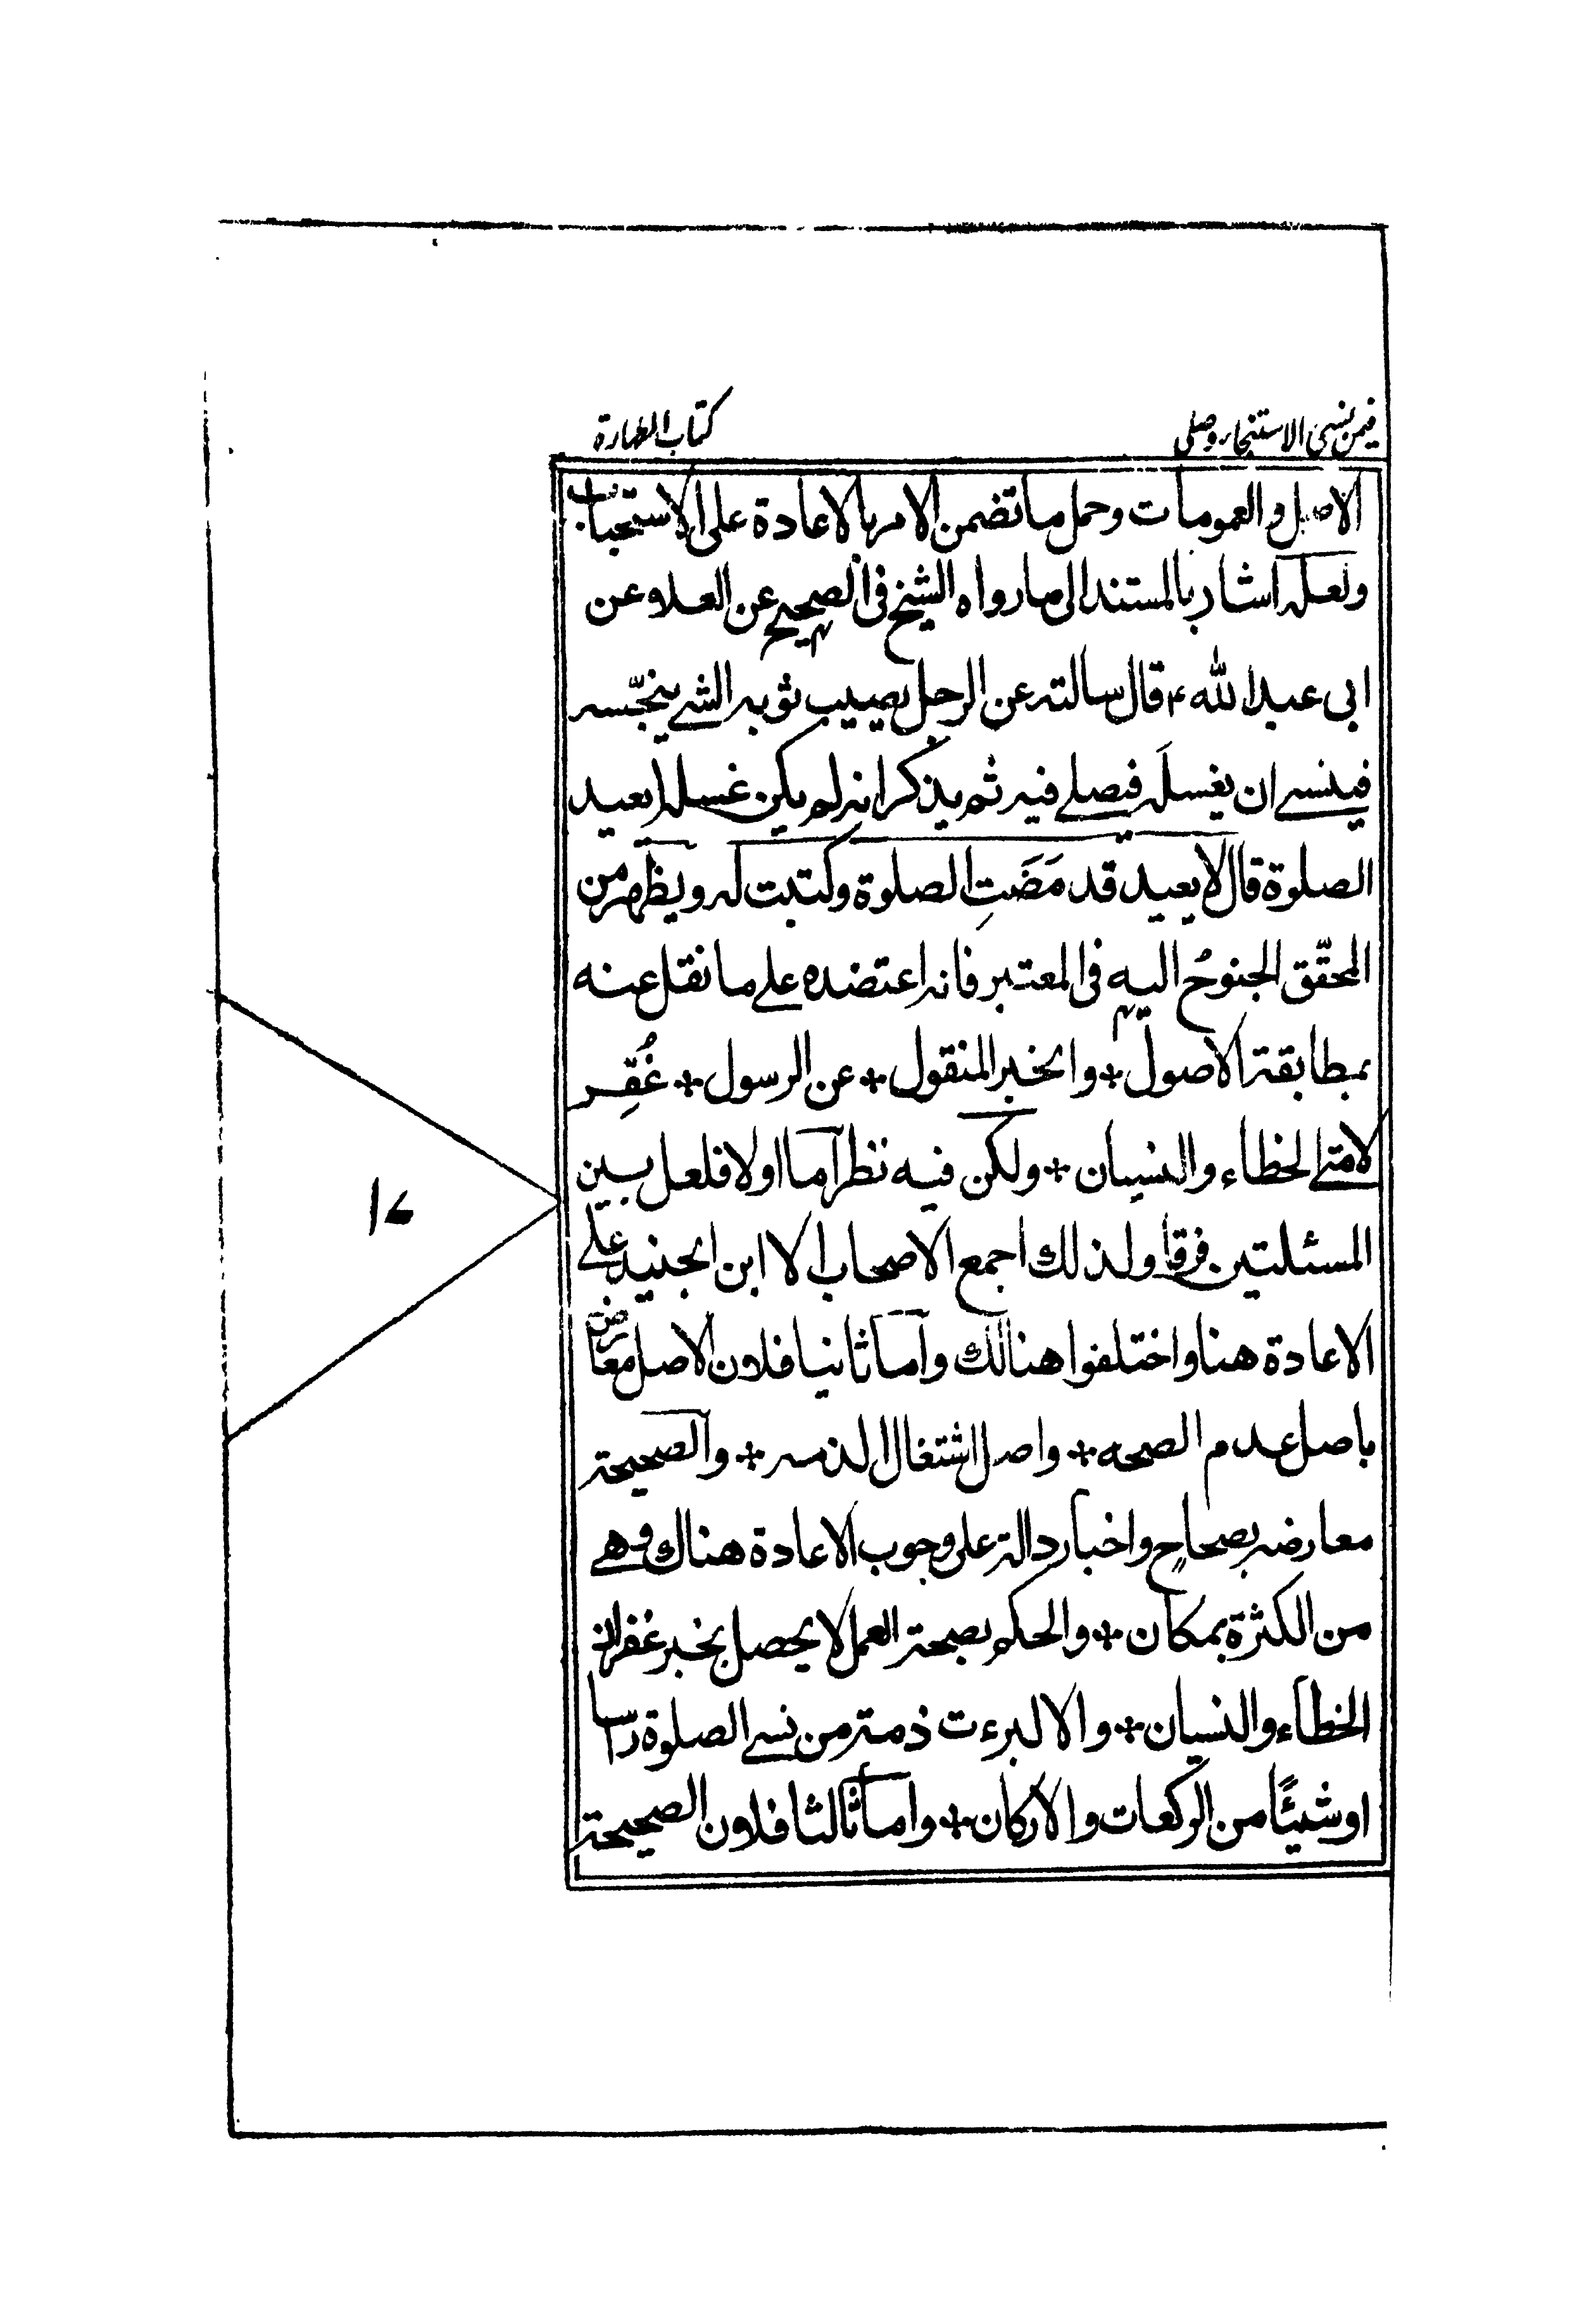 فيمن نسى الاستنجاء وصلى
كتاب الطهارة
الاصل و العمومات وحمل ما تضمن الامر بالاعادة على الاستحباب
ولعله اشار بالمستند الى ما رواه الشيخ فى الصحيح عن العلاء عن
ابى عبد الله ؑ قال سالته عن الرجل يصيب ثوبه الشے ينجّسه
فينسے ان يغسله فيصلے فيه ثم يذكر انه لم يكن غسله ايعيد
الصلوة قال لا يعيد قد مَضَتِ الصلوة وكتبت له و يظهر من
المحقّق الجنوحُ اليه فى المعتبر فانه اعتضده علے ما نقل عنه
بمطابقة الاصول * والخبر المنقول * عن الرسول * غُفِر
لامتے الخطاء والنسيان * ولكن فيه نظر آما اولا فلعل بين
المسئلتين فرقا ولذلك اجمع الاصحاب الا ابن الجنيد علے
الاعادة هنا واختلفوا هنالك وآما ثانيا فلان الاصل معارض
باصل عدم الصحه * واصل اشتغال الذمه * والصحيحة
معارضه بصحاح واخبار دالة على وجوب الاعادة هناك وهے
من الكثرة بمكان * والحكم بصحة العمل لا يحصل بخبر غفران
الخطاء والنسيان * والا لبرءت ذمة من نسے الصلوة راسا
او شيئًا من الركعات والاركان * وآما ثالثا فلان الصحيحة
١٧